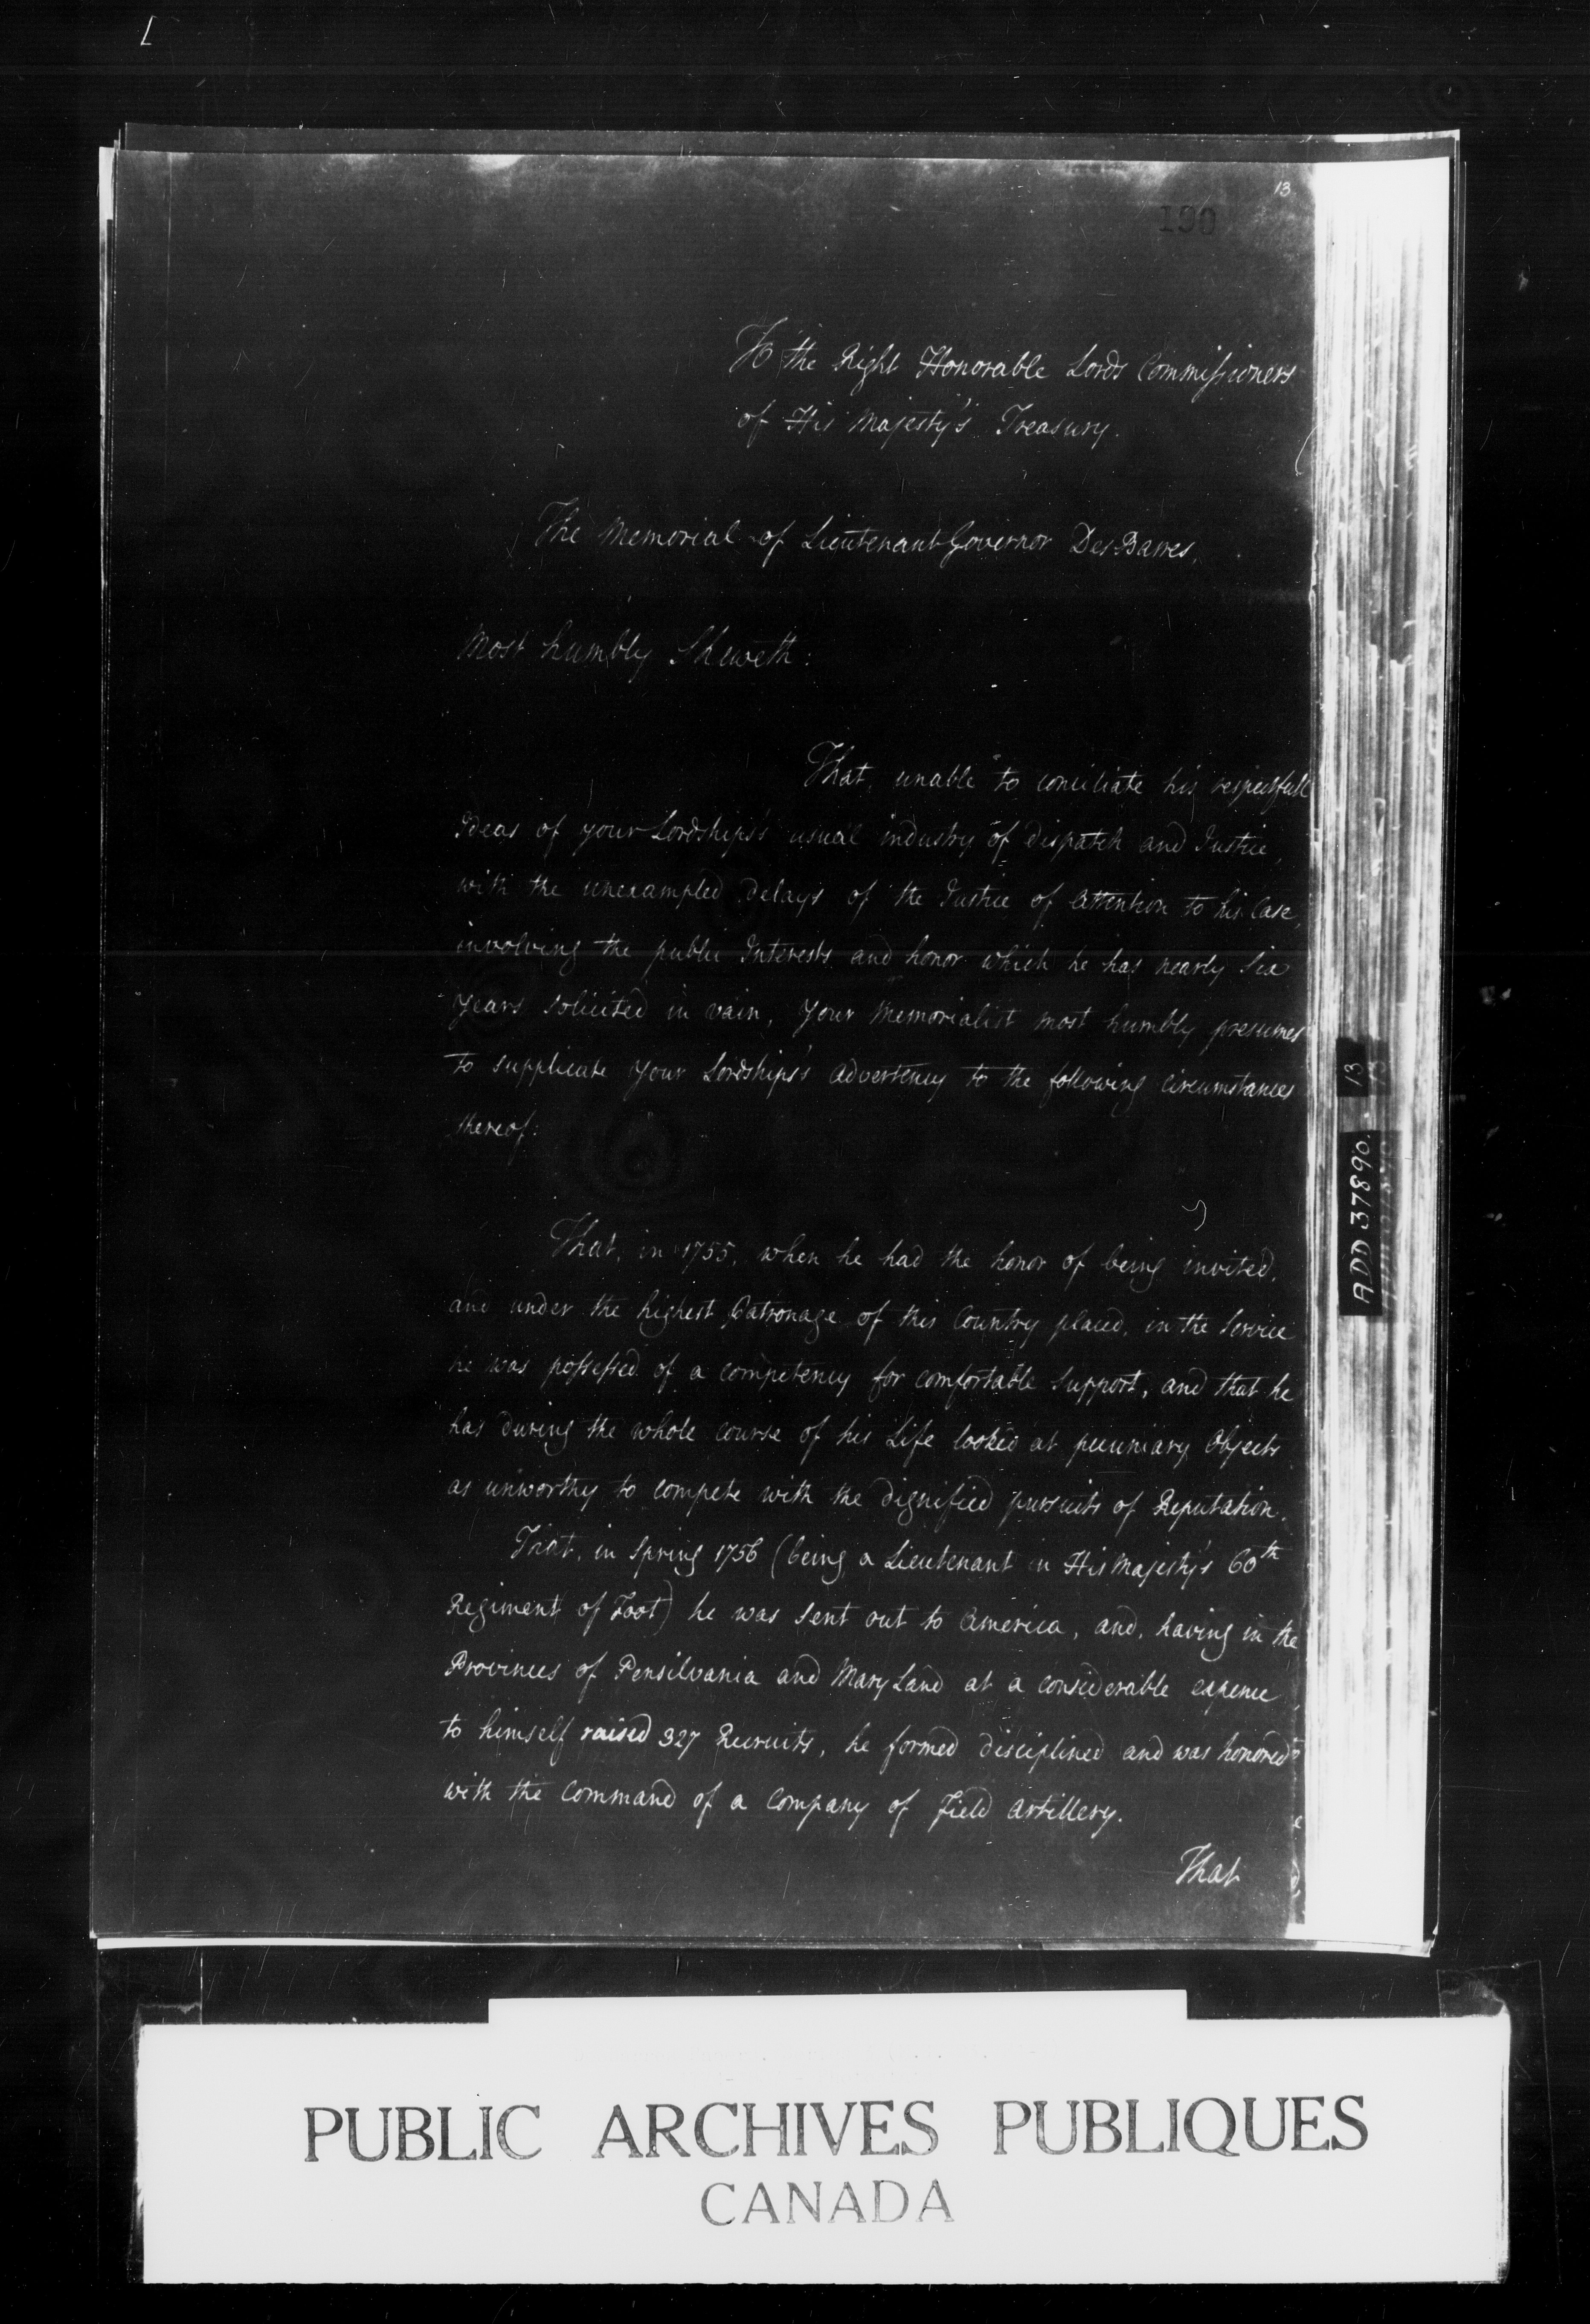 13
190
To the Right Honorable Lords Commissioners
of His Majesty's Treasury.
The Memorial of Lieutenant Governor DesBarres,
Most humbly Sheweth:
That, unable to conciliate his respectfull
Ideas of your Lordships's usual industry of dispatch and Justice,
with the unexampled Delays of the Justice of Attention to his Case,
involving the public Interests and honor which he has nearly Six
years solicited in vain, Your Memorialist most humbly presumes
to supplicate Your Lordships's Advertency to the following Circumstances
thereof:
That, in 1755, when he had the honor of being invited,
and under the highest Patronage of this Country placed, in the Service
he was possessed of a competency for comfortable Support, and that he
has during the whole course of his Life looked at pecuniary Objects
as unworthy to compete with the dignified pursuits of Reputation.
That, in Spring 1756 (being a Lieutenant in His Majesty's 60th
Regiment of Foot) he was sent out to America, and, having in the
Provinces of Pensilvania and MaryLand at a considerable expence
to himself raised 327 Recruits, he formed disciplined and was honored
with the Command of a Company of Field Artillery.
That
ADD 37890. 13
PUBLIC ARCHIVES PUBLIQUES
CANADA